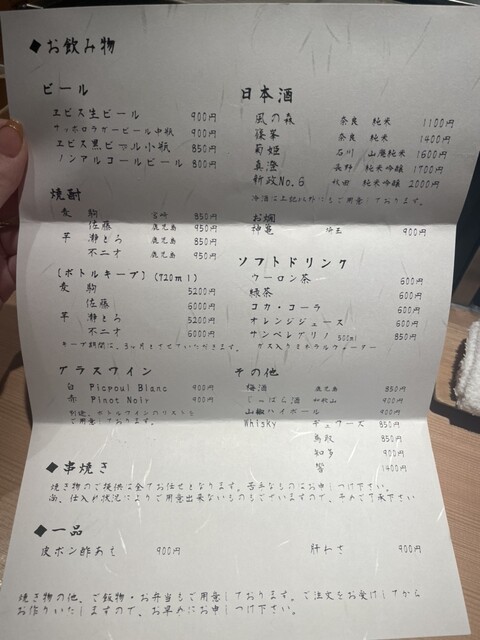 ◆お飲み物
ビール
エビス生ビール 900円
サッポロラガービール中瓶 900円
エビス黒ビール小瓶 850円
ノンアルコールビール 800円
日本酒
風の森 奈良 純米 1100円
篠峯 奈良 純米 1400円
菊姫 石川 山廃純米 1600円
真澄 長野 純米吟醸 1700円
新政No.6 秋田 純米吟醸 2000円
冷酒は上記以外にもご用意しております。
お燗
神亀 埼玉 900円
焼酎
麦 駒 宮崎 850円
佐藤 鹿児島 950円
芋 瀞とろ 鹿児島 850円
不二才 鹿児島 950円
(ボトルキープ)(720ml)
麦 駒 5200円
佐藤 6000円
芋 瀞とろ 5200円
不二才 6000円
キープ期間は、3ヶ月とさせていただきます。
ソフトドリンク
ウーロン茶 600円
緑茶 600円
コカ・コーラ 600円
オレンジジュース 600円
サンペレグリノ 500ml 850円
ガス入りミネラルウォーター
グラスワイン
白 Picpoul Blanc 900円
赤 Pinot Noir 900円
別途、ボトルワインのリストも
ご用意しております。
その他
梅酒 鹿児島 850円
じゃばら酒 和歌山 900円
山椒ハイボール 900円
Whisky 850円
鳥取 850円
知多 900円
響 1400円
◆串焼き
焼き物のご提供は全てお任せとなります。苦手なものはお申しつけ下さい。
尚、仕入れ状況によりご用意出来ないものもございますので、予めご了承下さい
◆一品
皮ポン酢あえ 900円
肝わさ 900円
焼き物の他、ご飯物・お弁当もご用意しております。ご注文をお受けしてから
お作りいたしますので、お早めにお申しつけ下さい。